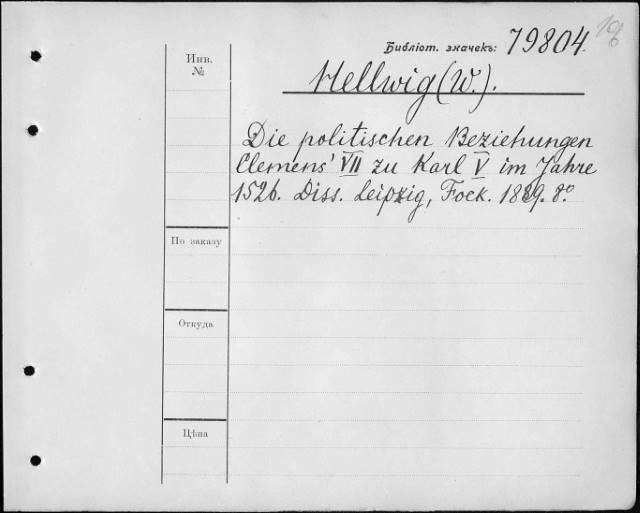 Библіот. значекъ: 79804.
Инв.
№
Hellwig (W.).
Die politischen Beziehungen
Clemens' VII zu Karl V im Jahre
1526. Diss. Leipzig, Fock. 1889. 8º
По заказу
Откуда
Цѣна